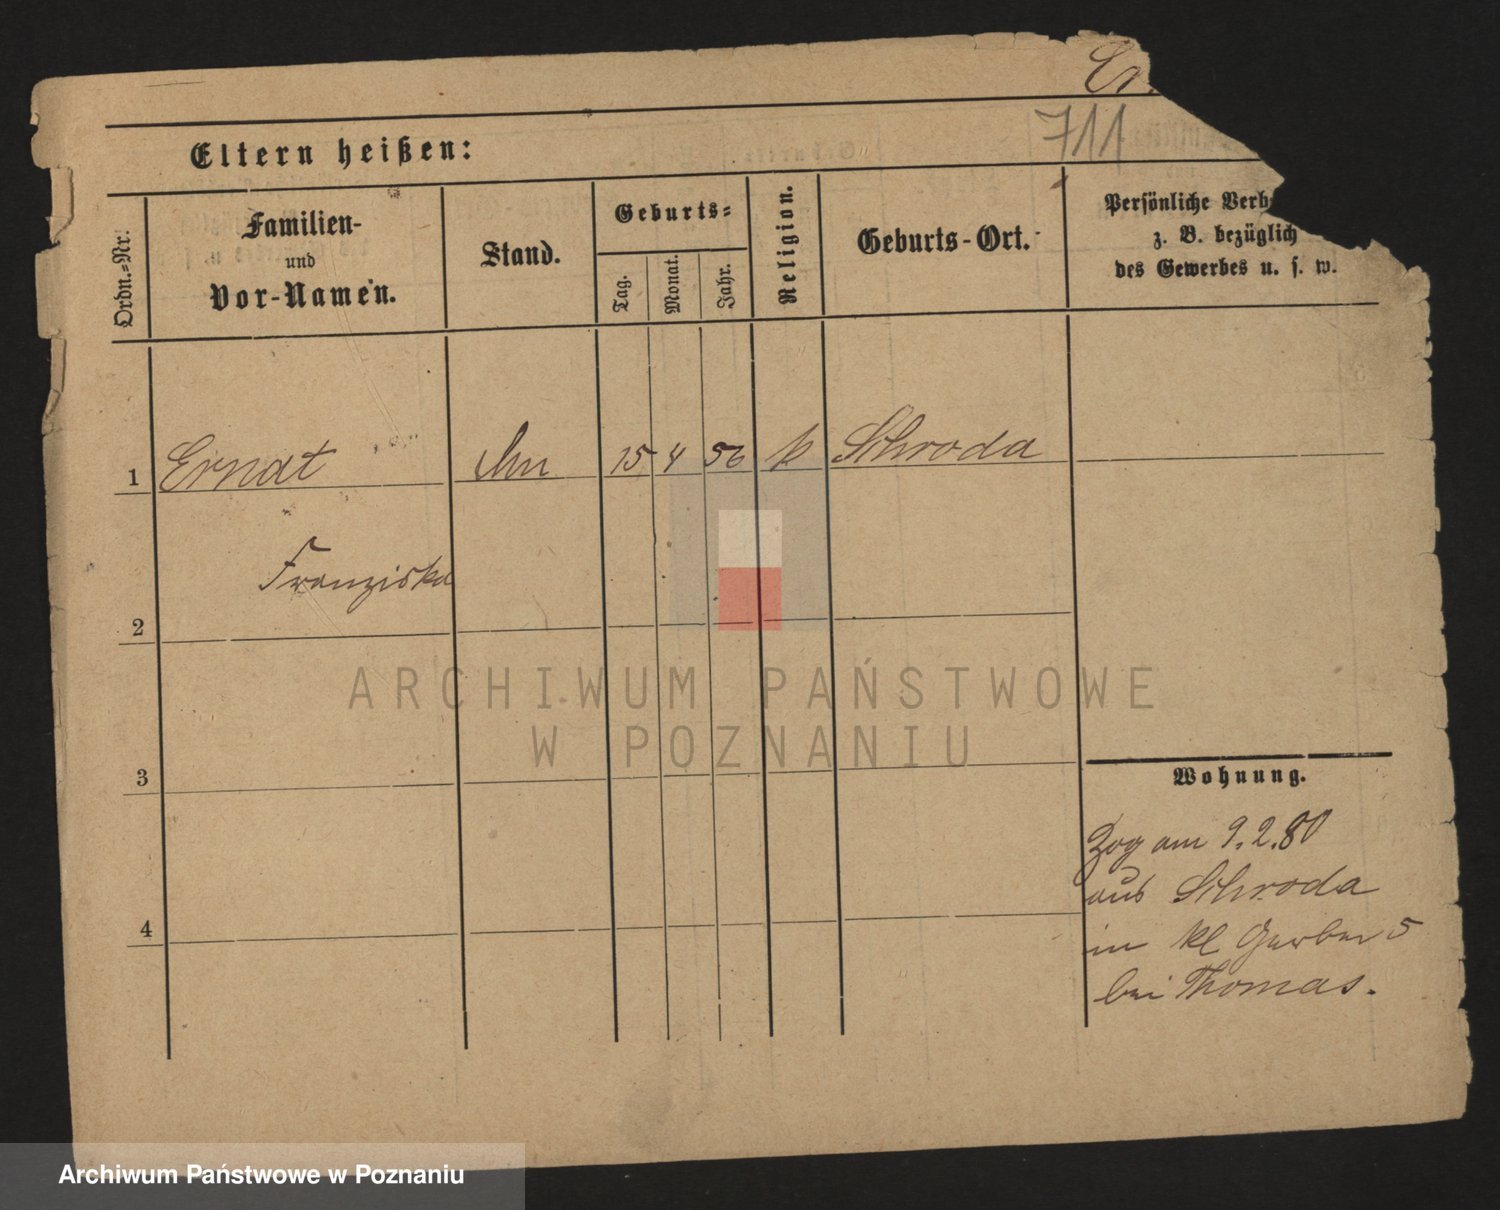 711
Eltern heißen:
Ordn.=Nr.
Familien-
und
Vor-Namen.
Stand.
Geburts=
Tag.
Monat.
Jahr.
Religion.
Geburts-Ort.
Persönliche Verh
z. B. bezüglich
des Gewerbes u. s. w.
1 Ernat 15 4 56 k Schroda
Franziska
2
3
4
Wohnung.
Zog am 9.2.80
aus Schroda
in kl Gerber 5
bei Thomas.
ARCHIWUM PAŃSTWOWE
W POZNANIU
Archiwum Państwowe w Poznaniu